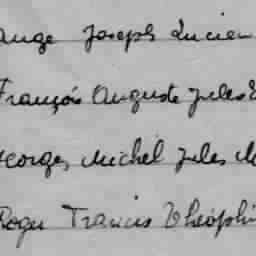 ange Joseph Lucien
François Auguste Jules
Georges Michel Jules M
Roger Francis Théophi